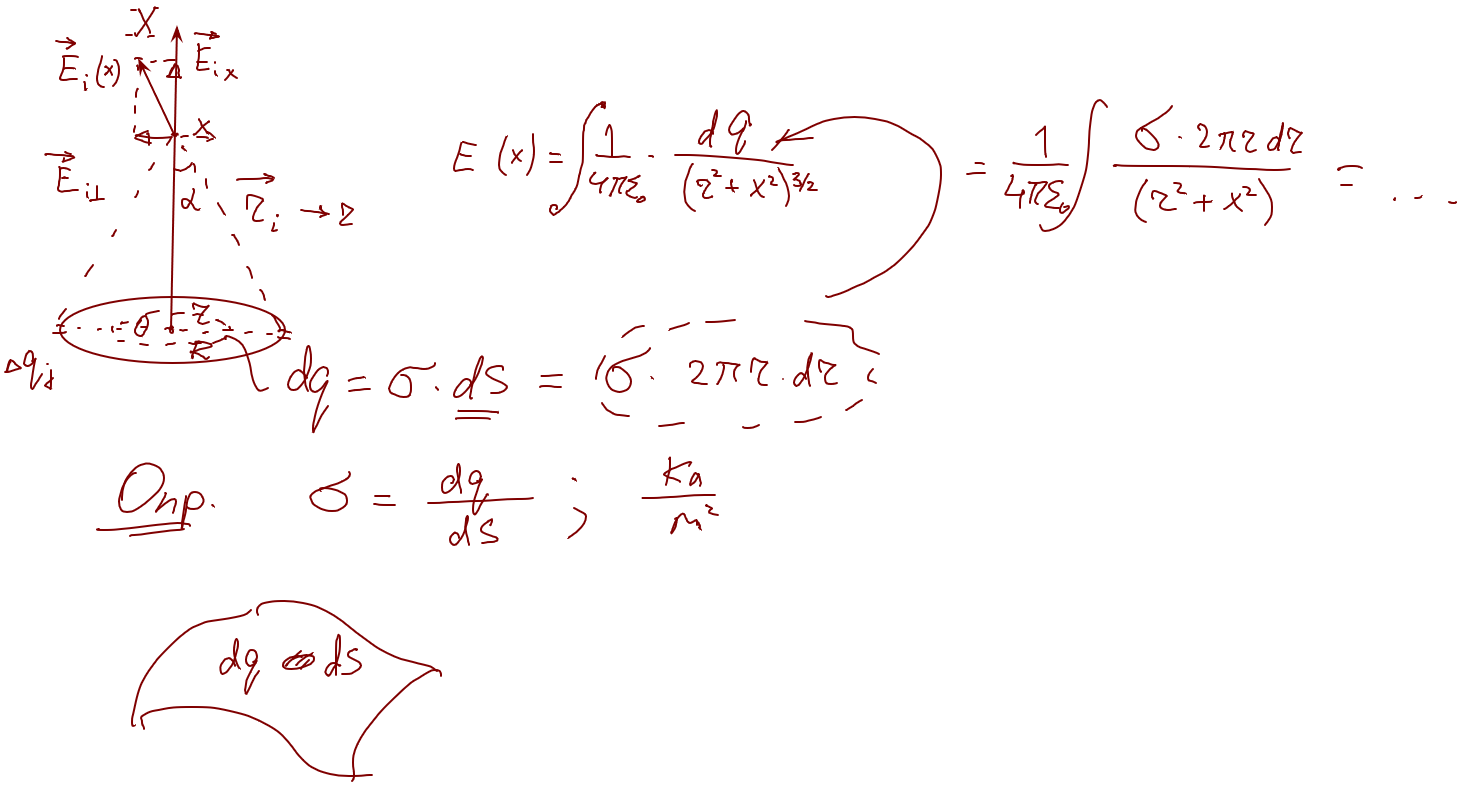 X
E⃗ᵢ(x) E⃗ᵢₓ
x
E⃗ᵢ⊥
α r⃗ᵢ → r
E(x) = ∫ 1/(4πε₀) · dq/(r² + x²)^(3/2) = 1/(4πε₀) ∫ σ · 2πr dr/(r² + x²) = ...
σ r
R
Δqⱼ
dq = σ · dS = σ · 2πr · dr
Опр. σ = dq/dS ; Кл/м²
dq dS